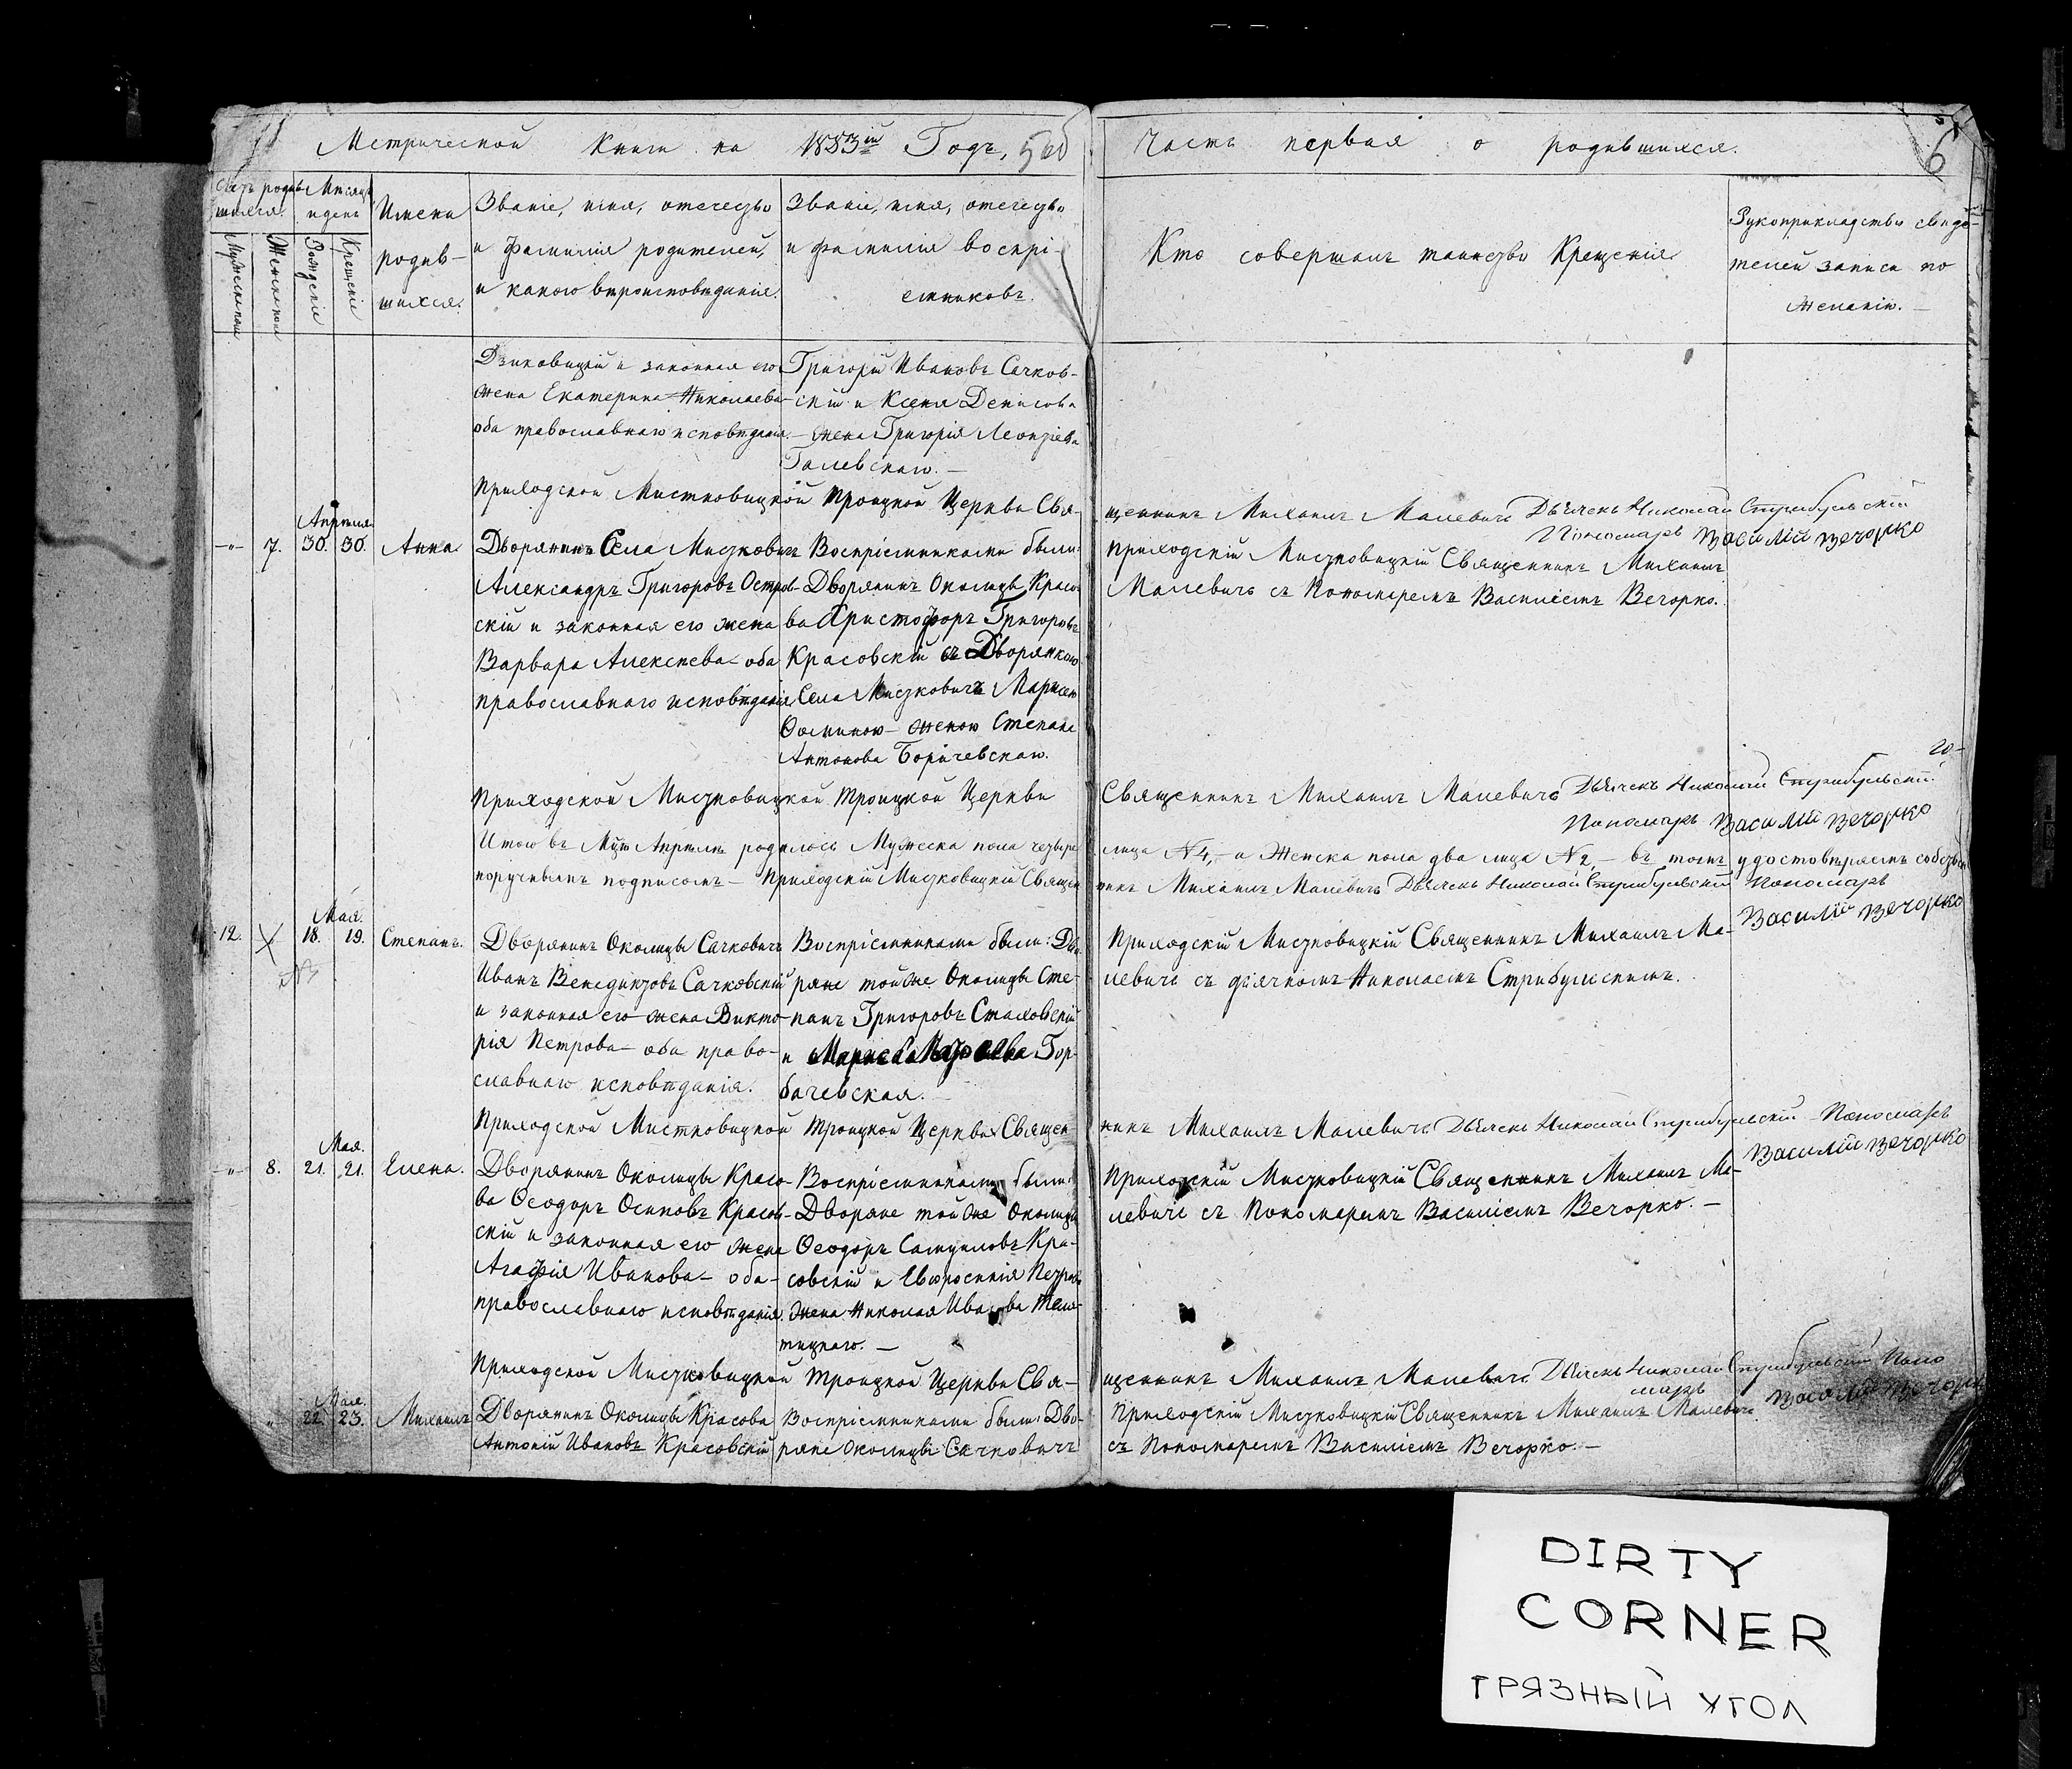 Метрической Книги на 1853й Годъ,
Часть первая о родившихся.
6
Счетъ родив-
шихся.
Мужескаго
Женскаго
Месяцъ
и день
Рожденія
Крещенія
Имена
родив-
шихся.
Званіе, имя, отечество
и фамилія родителей,
и какого вѣроисповѣданія.
Званіе, имя, отечество
и фамилія воспрі-
емниковъ.
Кто совершалъ таинство Крещенія
Рукоприкладство свидѣ-
телей записи по
желанію.
Дзиковицкій и законная его
жена Екатерина Николаева
оба православнаго исповѣданія.
Григорій Ивановъ Сачков-
скій и Ксенія Денисова
жена Григорія Леонтіева
Галевскаго.
Приходской Мистковицкой Троицкой Церкви Свя-
щенникъ Михаилъ Малевичъ Дьячекъ Николай Стрибульскій
Пономарь Василій Вечорко
Апрѣля
7. 30. 30. Анна
Дворянинъ Села Мистковичъ
Александръ Григоровъ Остров-
скій и законная его жена
Варвара Алексѣева оба
православнаго исповѣданія
Воспріемниками были:
Дворянинъ Околицы Красо-
ва Христофоръ Григоровъ
Красовскій съ Дворянкою
Села Мистковичъ
Ѳоминою женою Степана
Антонова Боричевскаго.
Приходскій Мистковицкій Священникъ Михаилъ
Малевичъ съ Пономаремъ Василіемъ Вечорко.
Приходской Мистковицкой Троицкой Церкви
Священникъ Михаилъ Малевичъ Дьячекъ Николай Стрибульскій
Пономарь Василій Вечорко
Итого въ Мцѣ Апрѣлѣ родилось Мужеска пола четыре
лица № 4, а Женска пола два лица № 2, въ томъ удостовѣряемъ собствен
норучнымъ подписомъ Приходскій Мистковицкій Священ
никъ Михаилъ Малевичъ Дьячекъ Николай Стрибульскій Пономарь
Василій Вечорко
Мая.
12. 18. 19. Степанъ.
Дворянинъ Околицы Сачковичъ
Иванъ Венедиктовъ Сачковскій
и законная его жена Викто-
рія Петрова оба право-
славнаго исповѣданія.
Воспріемниками были: Дво-
ряне той же Околицы Сте-
панъ Григоровъ Стаховскій
и Гор-
бачевская.
Приходскій Мистковицкій Священникъ Михаилъ Ма-
левичъ съ дьячкомъ Николаемъ Стрибульскимъ.
Приходской Мистковицкой Троицкой Церкви Священ
никъ Михаилъ Малевичъ Дьячекъ Николай Стрибульскій Пономарь
Василій Вечорко
Мая.
8. 21. 21. Елена.
Дворянинъ Околицы Красо-
ва Ѳеодоръ Осиповъ Красов-
скій и законная его жена
Агафія Иванова оба
православнаго исповѣданія.
Воспріемниками были:
Дворяне той же Околицы
Ѳеодоръ Самуиловъ Кра-
совскій и Евфросинія Петрова
жена Николая Иванова Теля-
тицкаго.
Приходскій Мистковицкій Священникъ Михаилъ Ма-
левичъ съ Пономаремъ Василіемъ Вечорко.
Приходской Мистковицкой Троицкой Церкви Свя-
щенникъ Михаилъ Малевичъ Дьячекъ Николай Стрибульскій Поно
марь Василій Вечорко
Мая.
22. 23. Михаилъ
Дворянинъ Околицы Красова
Антоній Ивановъ Красовскій
Воспріемниками были: Дво-
ряне Околицы Сачковичъ
Приходскій Мистковицкій Священникъ Михаилъ Малевичъ
съ Пономаремъ Василіемъ Вечорко.
DIRTY
CORNER
ГРЯЗНЫЙ УГОЛ